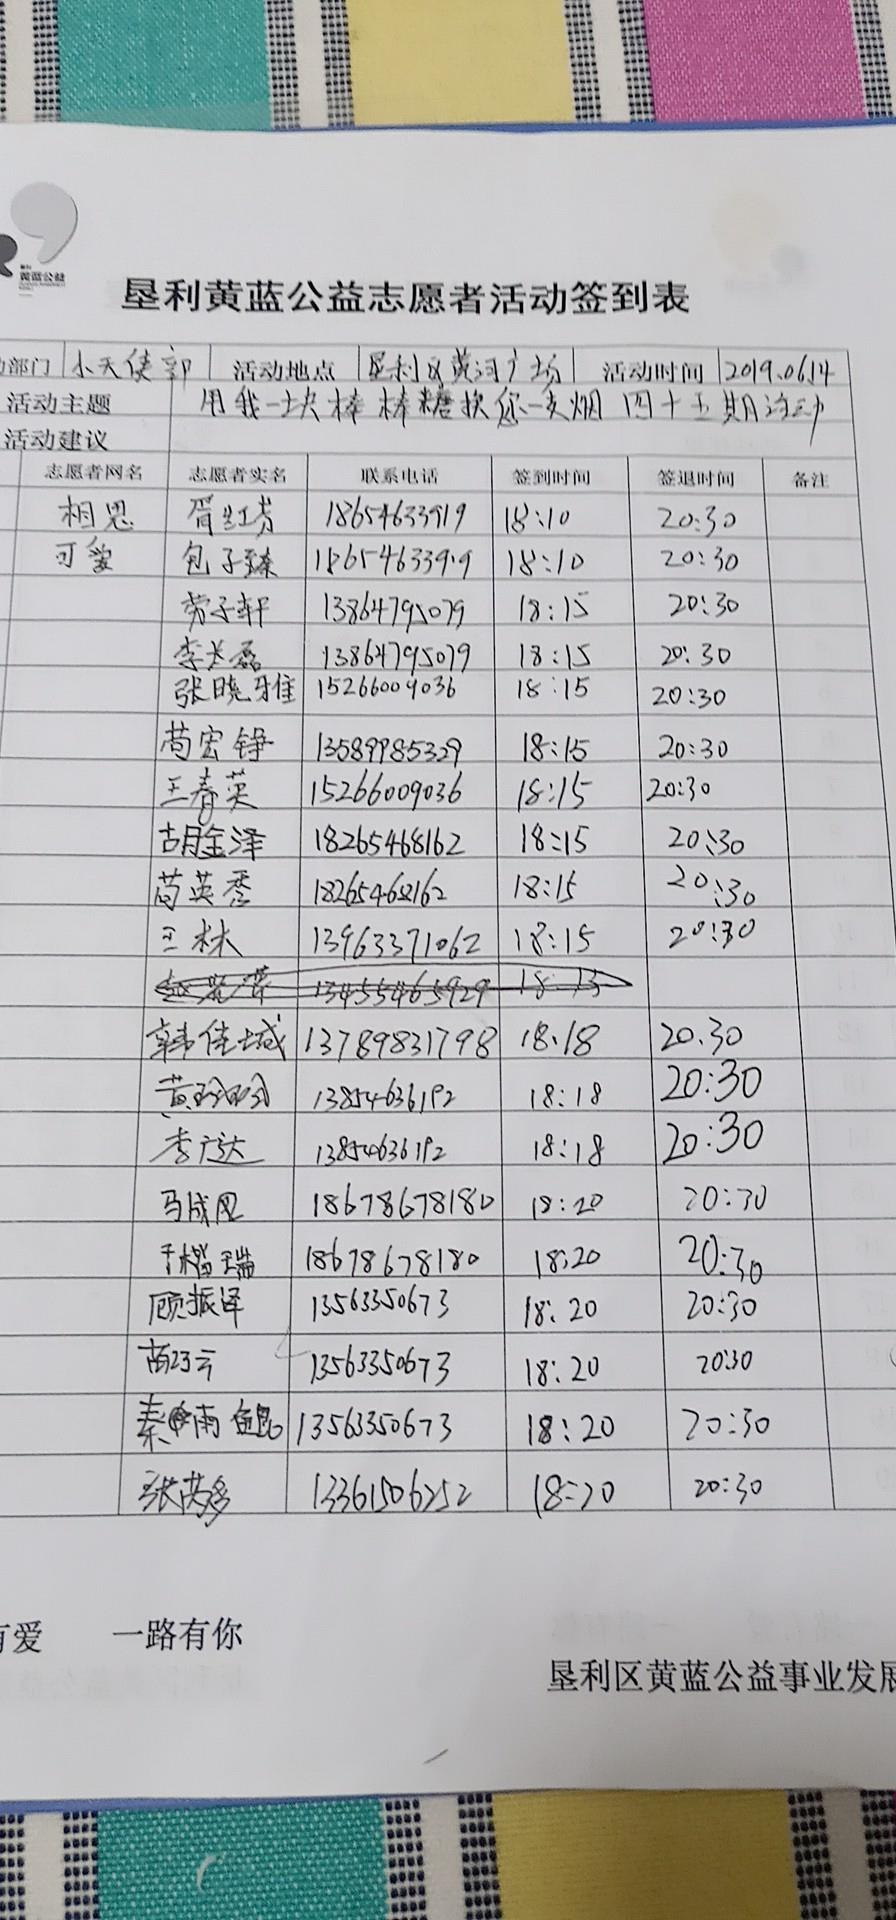 黄蓝公益
垦利黄蓝公益志愿者活动签到表
动部门 小天使部 活动地点 垦利区黄河广场 活动时间 2019.06.14
活动主题 用我一块棒棒糖换您一支烟 四十五期活动
活动建议
志愿者网名 志愿者实名 联系电话 签到时间 签退时间 备注
相思 胥兰芳 18654633919 18:10 20:30
可爱 包子臻 18654633919 18:10 20:30
劳子轩 13864795079 18:15 20:30
李关磊 13864795079 18:15 20:30
张晓雅 15266009036 18:15 20:30
苟宏铮 13589985329 18:15 20:30
王春英 15266009036 18:15 20:30
胡金泽 18265468162 18:15 20:30
苟英秀 18265468162 18:15 20:30
王林 13963371062 18:15 20:30
13455465929 18:15
韩佳城 13789831798 18.18 20.30
黄 13854636192 18:18 20:30
李广达 13854636192 18:18 20:30
马成凤 18678678180 18:20 20:30
于榴瑞 18678678180 18:20 20:30
顾振泽 13563350673 18:20 20:30
苗巧云 13563350673 18:20 20:30
秦雨 13563350673 18:20 20:30
张芮 13361506252 18:20 20:30
有爱 一路有你
垦利区黄蓝公益事业发展